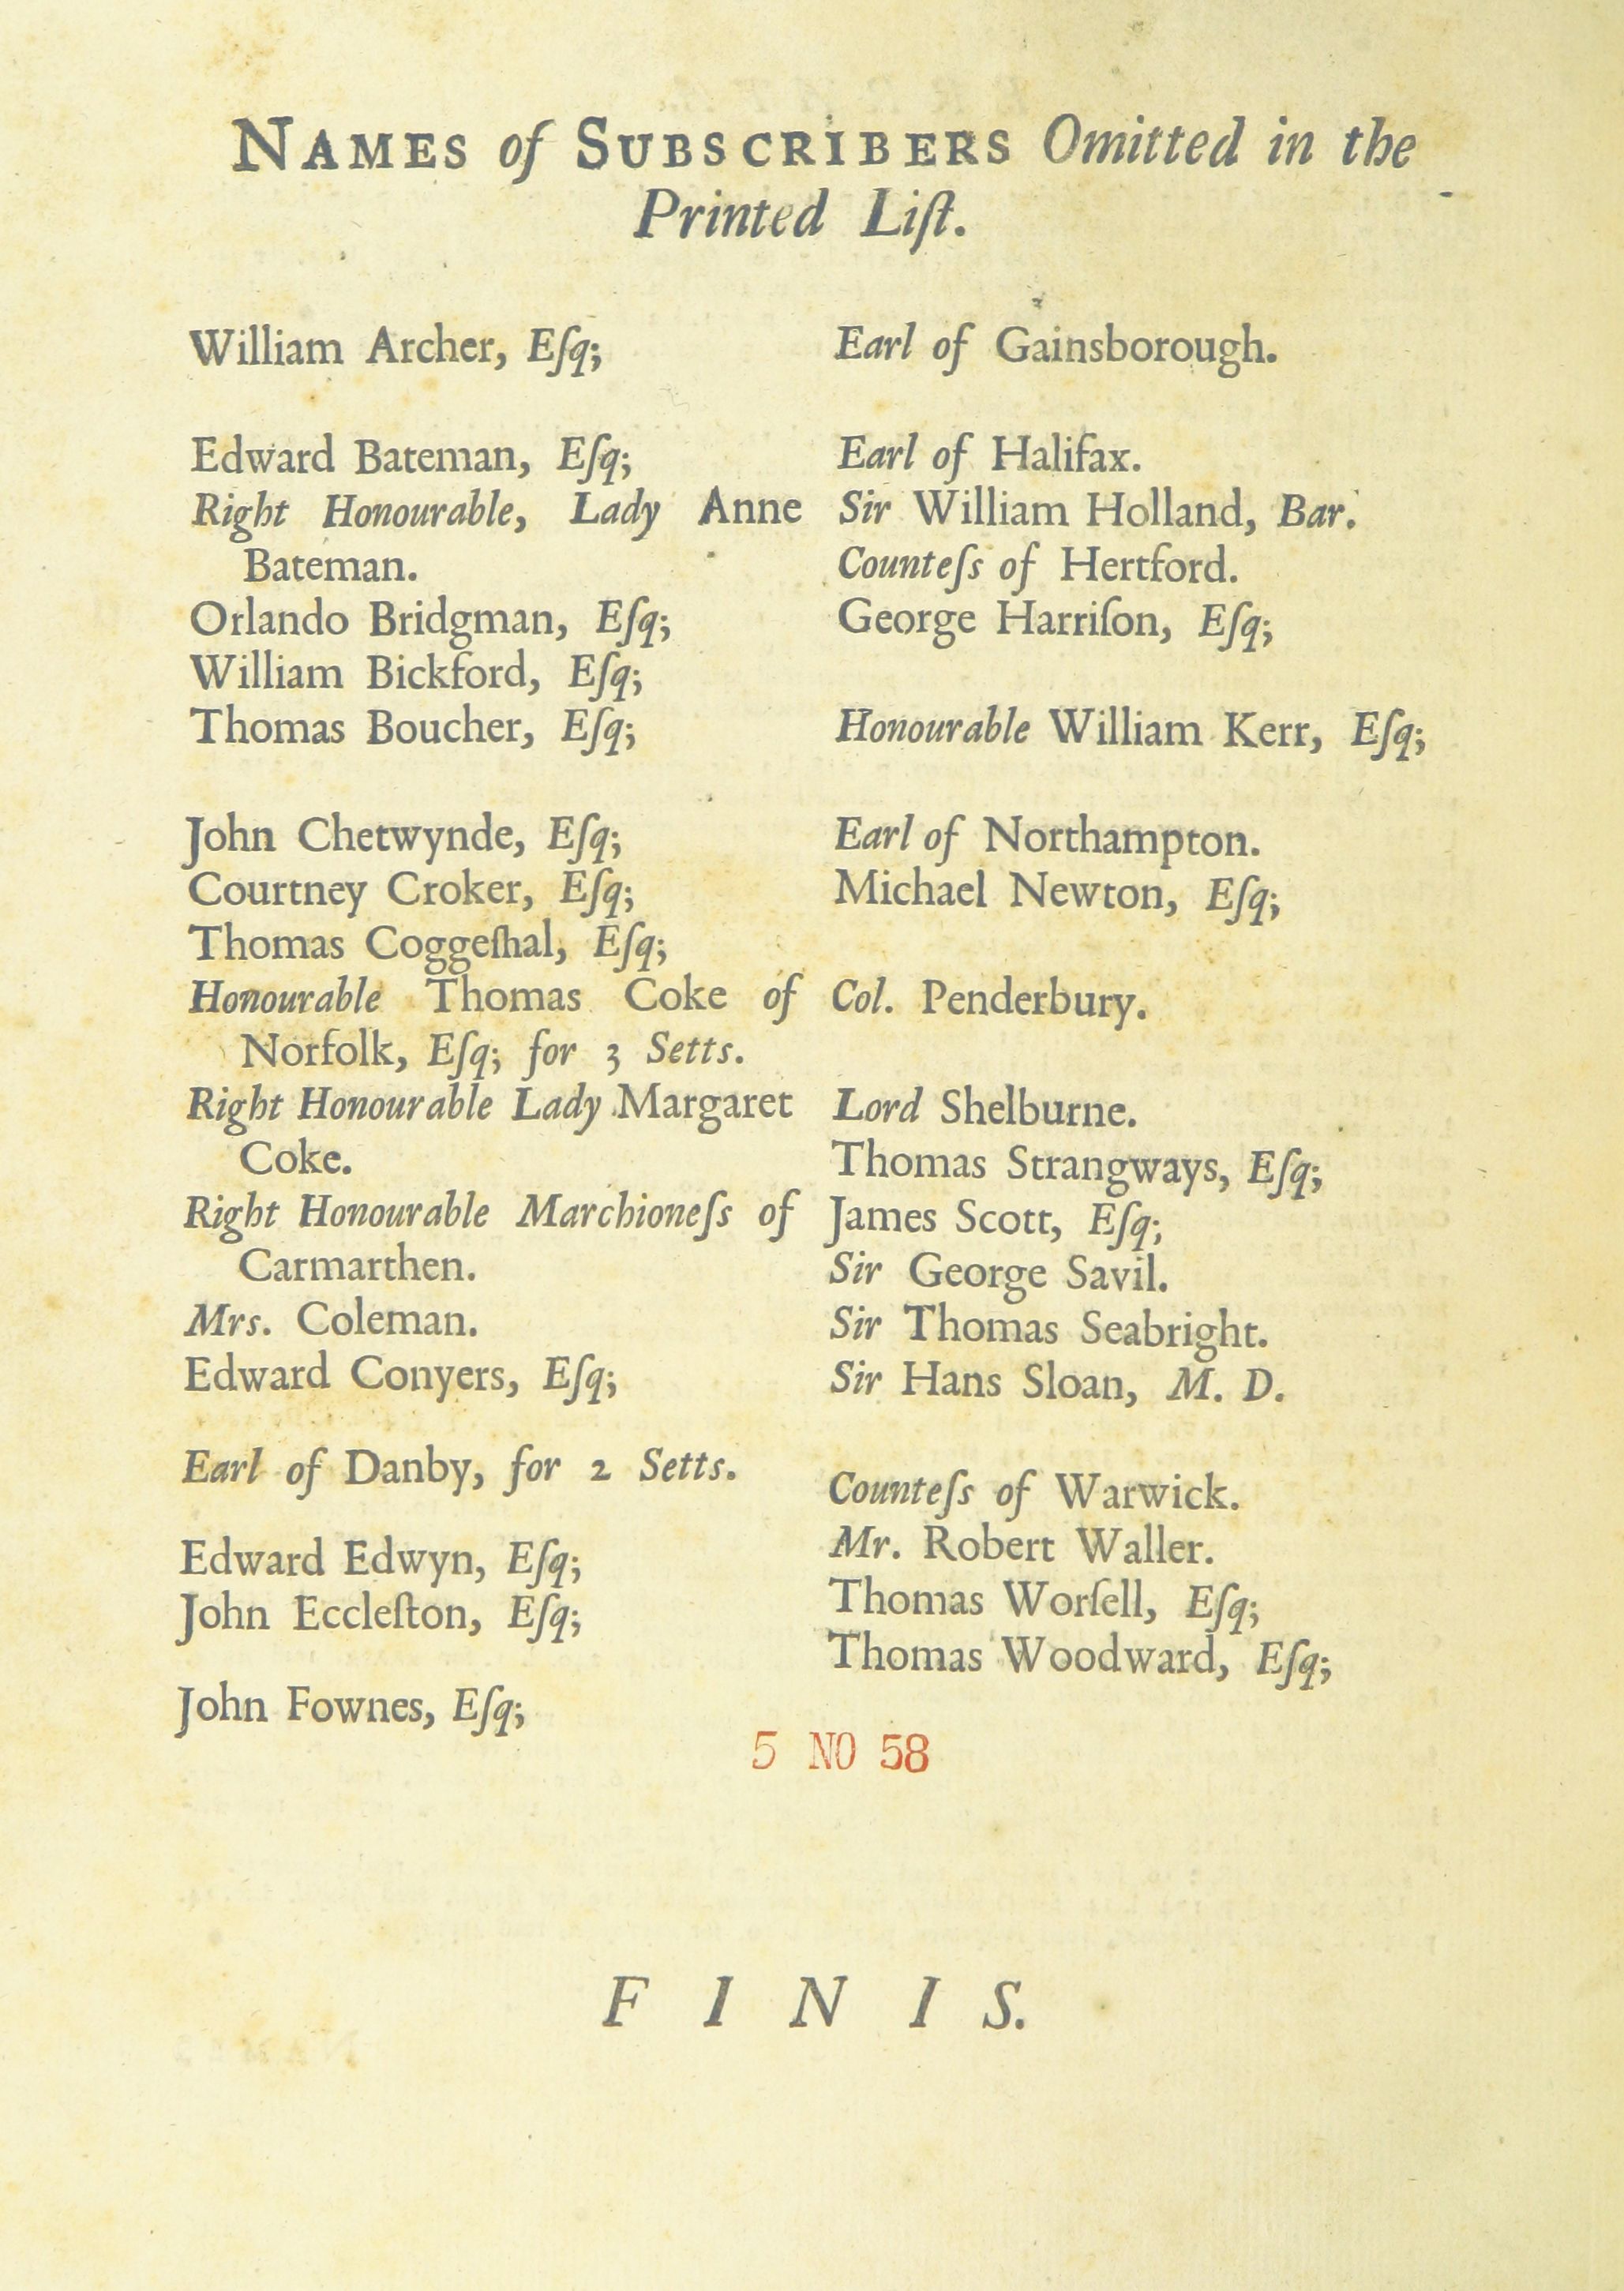 NAMES of SUBSCRIBERS Omitted in the
Printed Liſt.
William Archer, Eſq;
Edward Bateman, Eſq;
Right Honourable, Lady Anne
Bateman.
Orlando Bridgman, Eſq;
William Bickford, Eſq;
Thomas Boucher, Eſq;
John Chetwynde, Eſq;
Courtney Croker, Eſq;
Thomas Coggeſhal, Eſq;
Honourable Thomas Coke of
Norfolk, Eſq; for 3 Setts.
Right Honourable Lady Margaret
Coke.
Right Honourable Marchioneſs of
Carmarthen.
Mrs. Coleman.
Edward Conyers, Eſq;
Earl of Danby, for 2 Setts.
Edward Edwyn, Eſq;
John Eccleſton, Eſq;
John Fownes, Eſq;
Earl of Gainsborough.
Earl of Halifax.
Sir William Holland, Bar.
Counteſs of Hertford.
George Harriſon, Eſq;
Honourable William Kerr, Eſq;
Earl of Northampton.
Michael Newton, Eſq;
Col. Penderbury.
Lord Shelburne.
Thomas Strangways, Eſq;
James Scott, Eſq;
Sir George Savil.
Sir Thomas Seabright.
Sir Hans Sloan, M. D.
Counteſs of Warwick.
Mr. Robert Waller.
Thomas Worſell, Eſq;
Thomas Woodward, Eſq;
5 NO 58
FINIS.